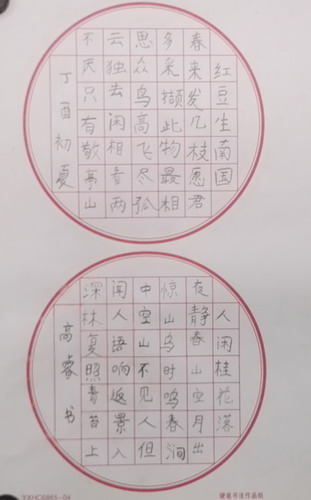 红豆生南国
春来发几枝愿君
多采撷此物最相
思众鸟高飞尽孤
云独去闲相看两
不厌只有敬亭山
丁酉初夏
人闲桂花落
夜静春山空月出
惊山鸟时鸣春涧
中空山不见人但
闻人语响返景入
深林复照青苔上
高睿书
硬笔书法作品纸